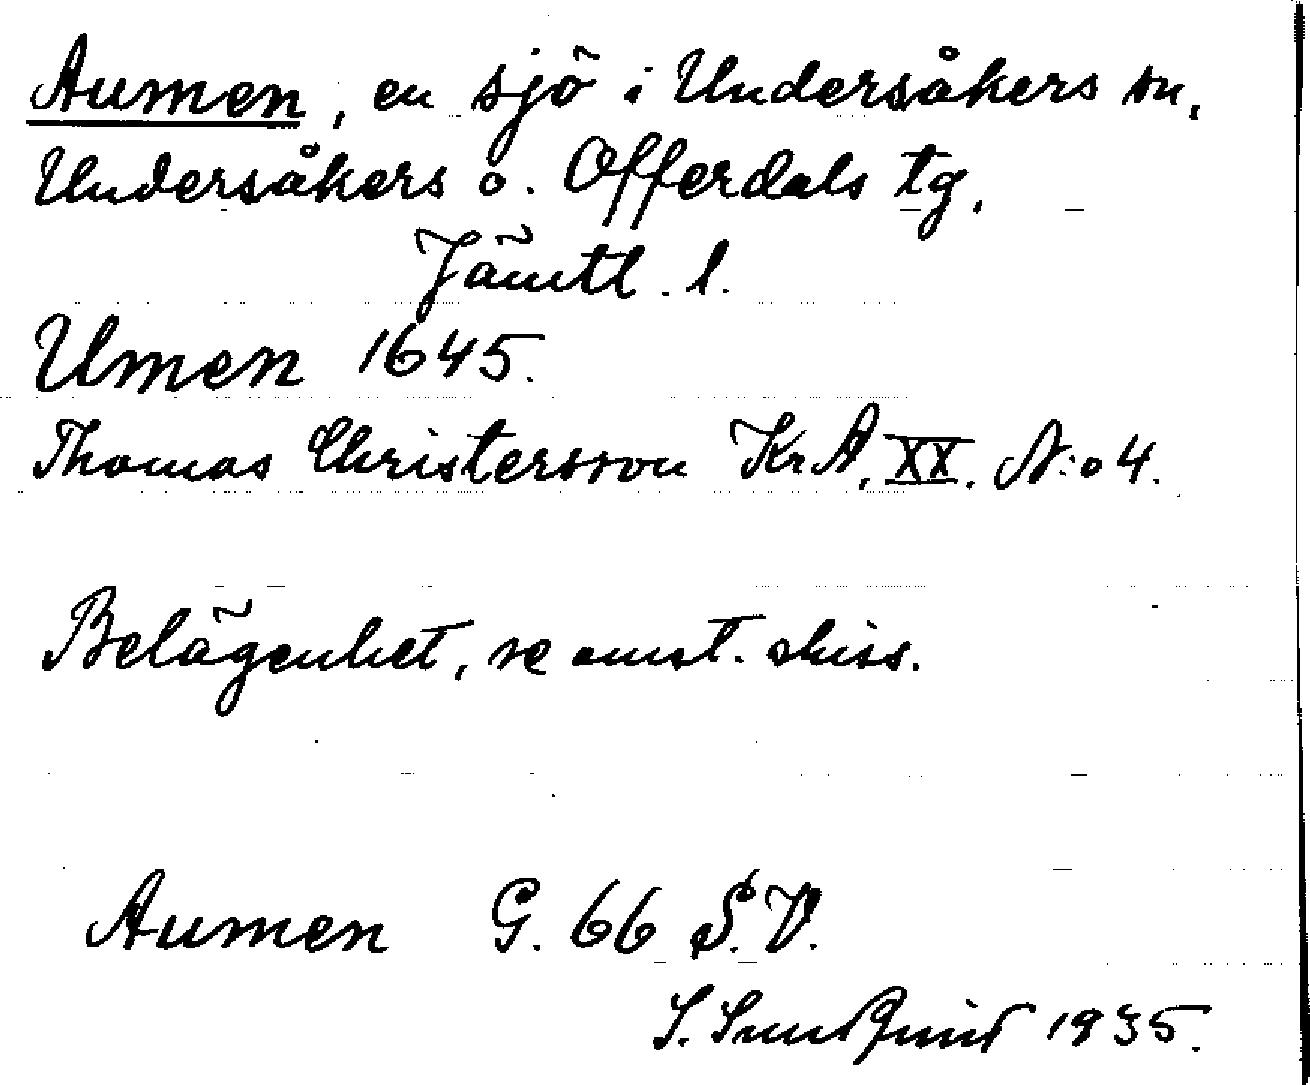 Aumen, en sjö i Undersåkers sn,
Undersåkers o. Offerdals tg.
Jämtl. l.
Umen 1645.
Thomas Christersson Kr A, XX. N:o 4.
Belägenhet, se omst. skiss.
Aumen G. 66 S.V.
S. Sundquist 1935.